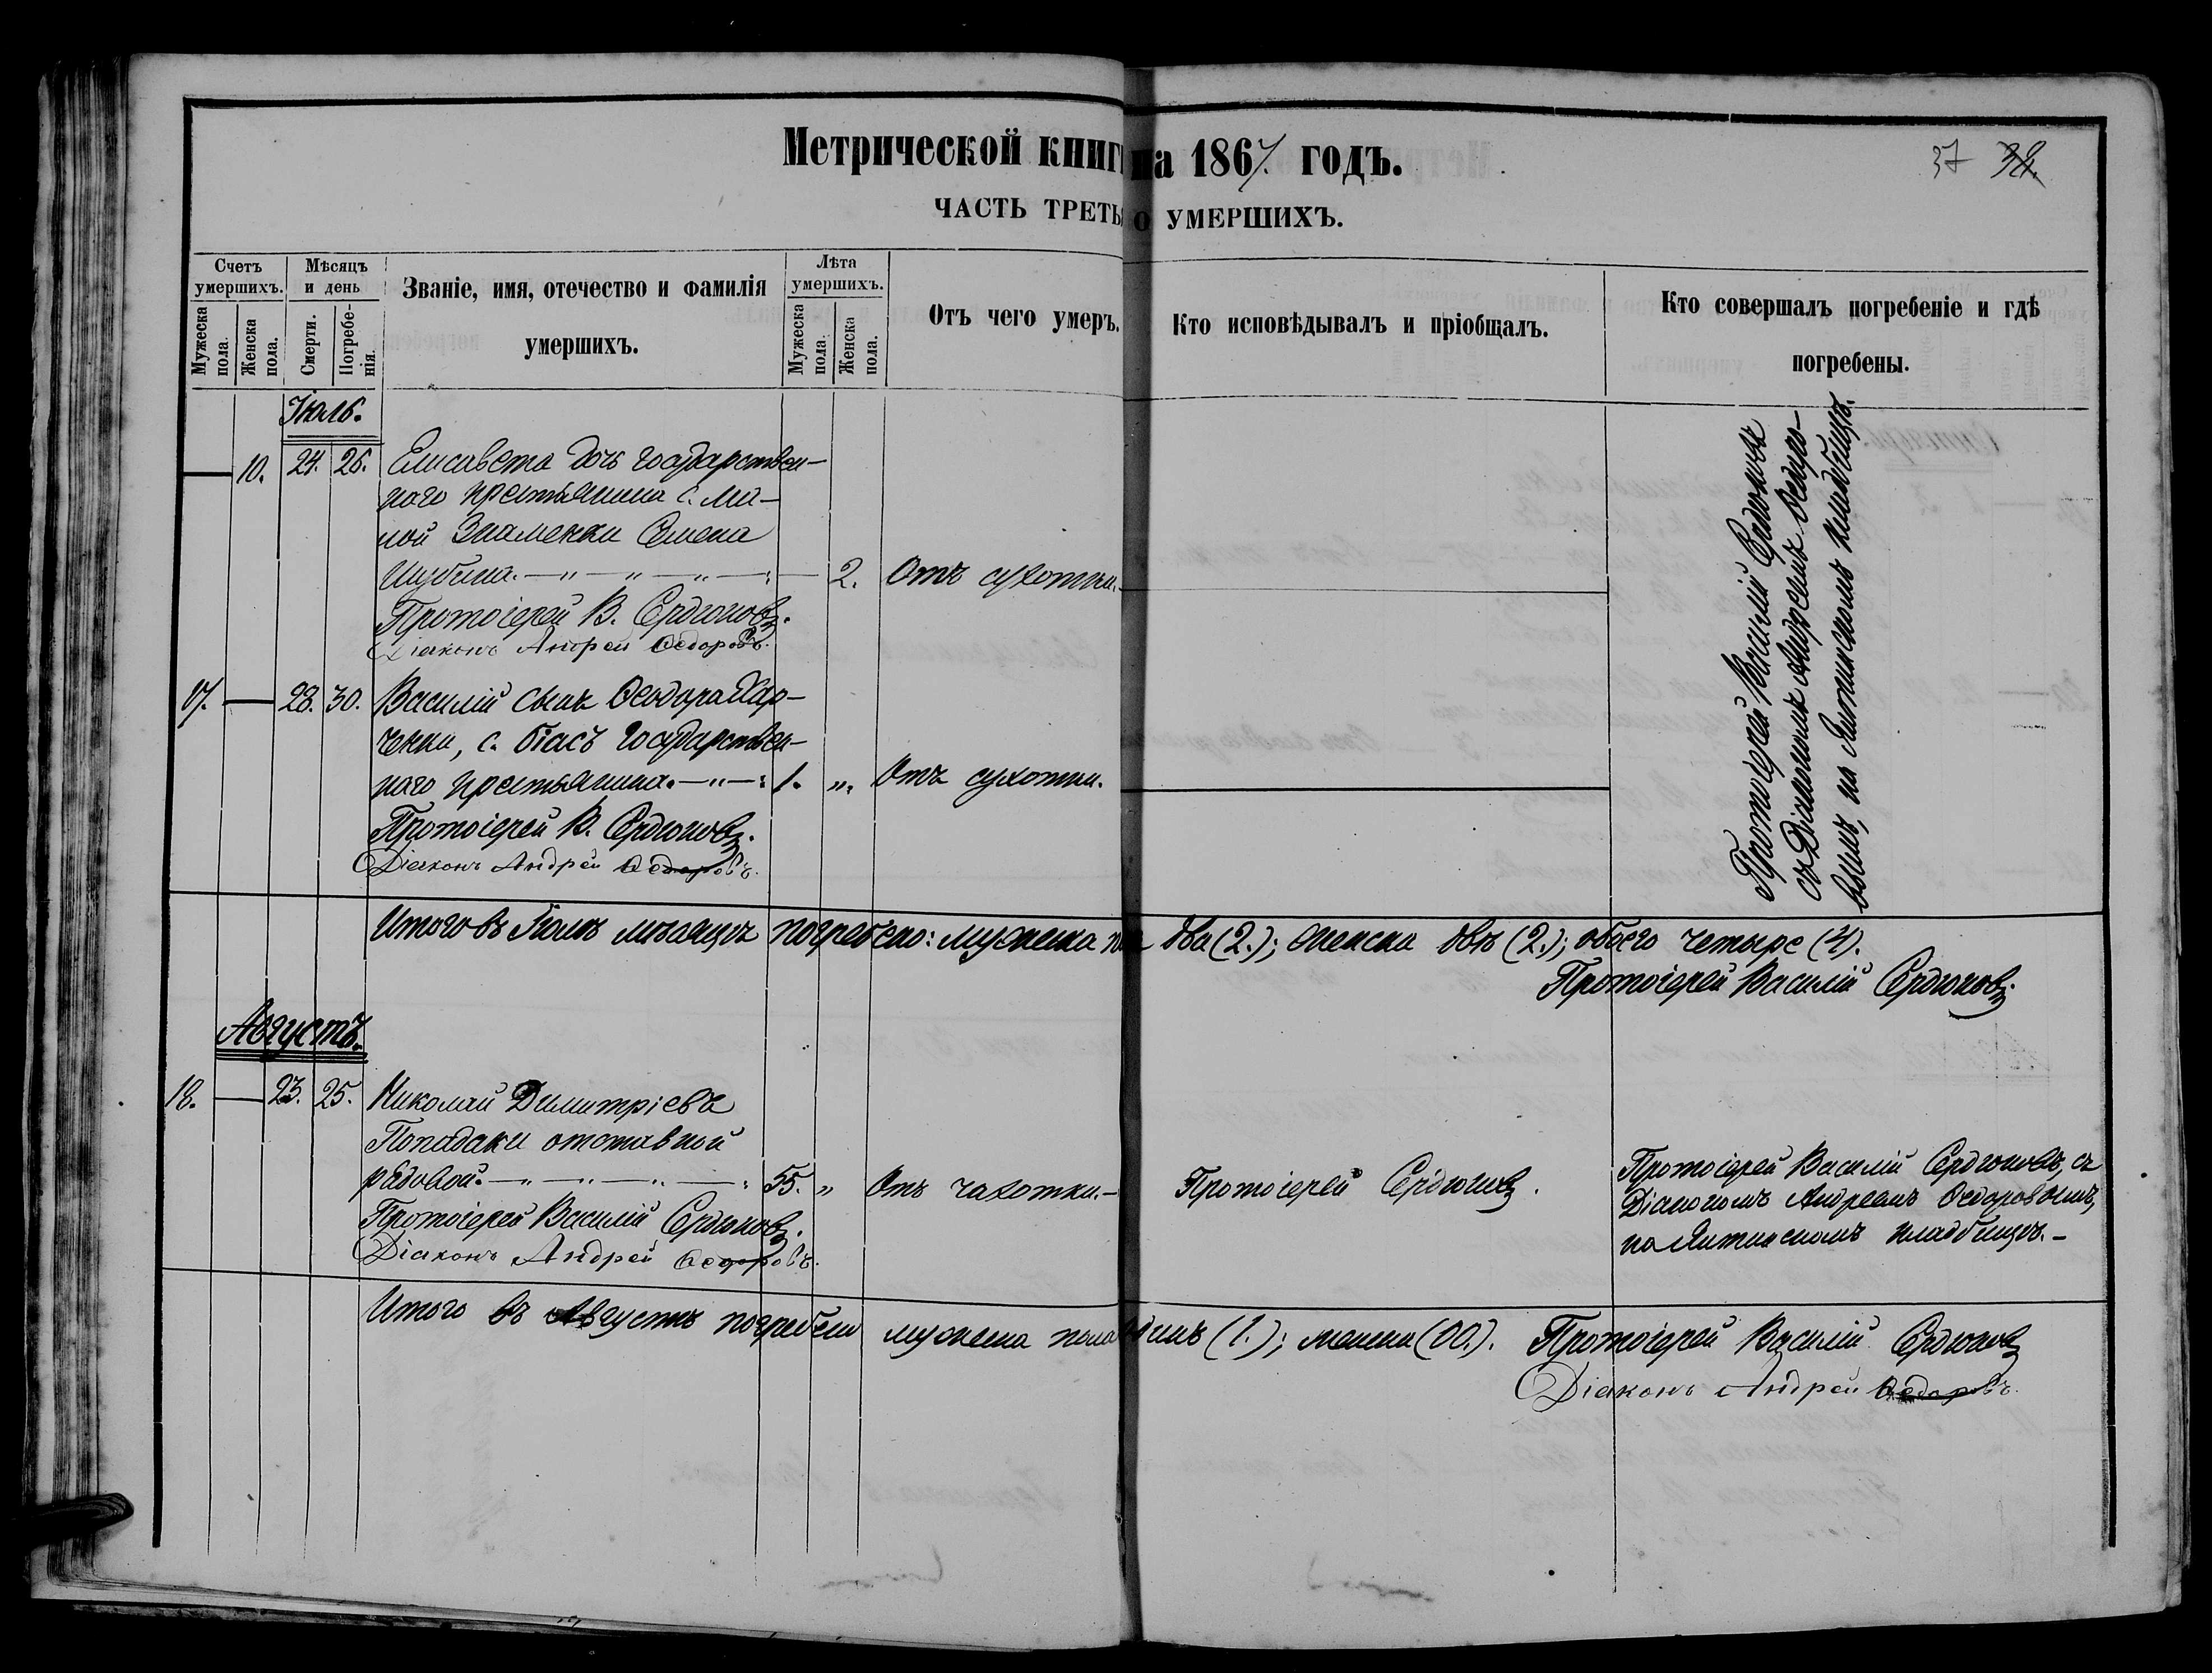 Метрической книги на 1867. годъ.
37 38.
ЧАСТЬ ТРЕТЬЯ О УМЕРШИХЪ.
Счетъ умершихъ.
Мужеска пола.
Женска пола.
Мѣсяцъ и день
Смерти.
Погребе-
нія.
Званіе, имя, отечество и фамилія
умершихъ.
Лѣта умершихъ.
Мужеска пола.
Женска пола.
Отъ чего умеръ.
Кто исповѣдывалъ и пріобщалъ.
Кто совершалъ погребеніе и гдѣ
погребены.
Іюль.
— 10. 24. 26. Елисавета дочь государствен-
наго крестьянина с. Ма-
лой Знаменки Семена
Шубина. —"—"—"—:— 2. Отъ сухотки.
Протоіерей В. Сердюковъ.
Діаконъ Андрей Ѳедоровъ.
17. — 28. 30. Василій сынъ Ѳеодора Хар-
ченки, с. Біасъ государствен-
наго крестьянина. —"—: 1. ". Отъ сухотки.
Протоіерей В. Сердюковъ.
Діаконъ Андрей Ѳедоровъ.
Протоіерей Василій Сердюковъ
съ Діакономъ Андреемъ Ѳедоро-
вымъ, на кладбищѣ.
Итого въ Іюлѣ мѣсяцѣ погребено: мужеска пола два (2.); женска двѣ (2.); обоего четыре (4).
Протоіерей Василій Сердюковъ.
Августъ.
18. — 23. 25. Николай Димитріевъ
Попадаки отставной
рядовой. —"—"—"—: 55. " Отъ чахотки. — Протоіерей Сердюковъ.
Протоіерей Василій Сердюковъ.
Діаконъ Андрей Ѳедоровъ.
Протоіерей Василій Сердюковъ, съ
Діакономъ Андреемъ Ѳедоровымъ,
на кладбищѣ. —
Итого въ Августѣ погребено мужеска пола одинъ (1.); женска (00.). Протоіерей Василій Сердюковъ
Діаконъ Андрей Ѳедоровъ.